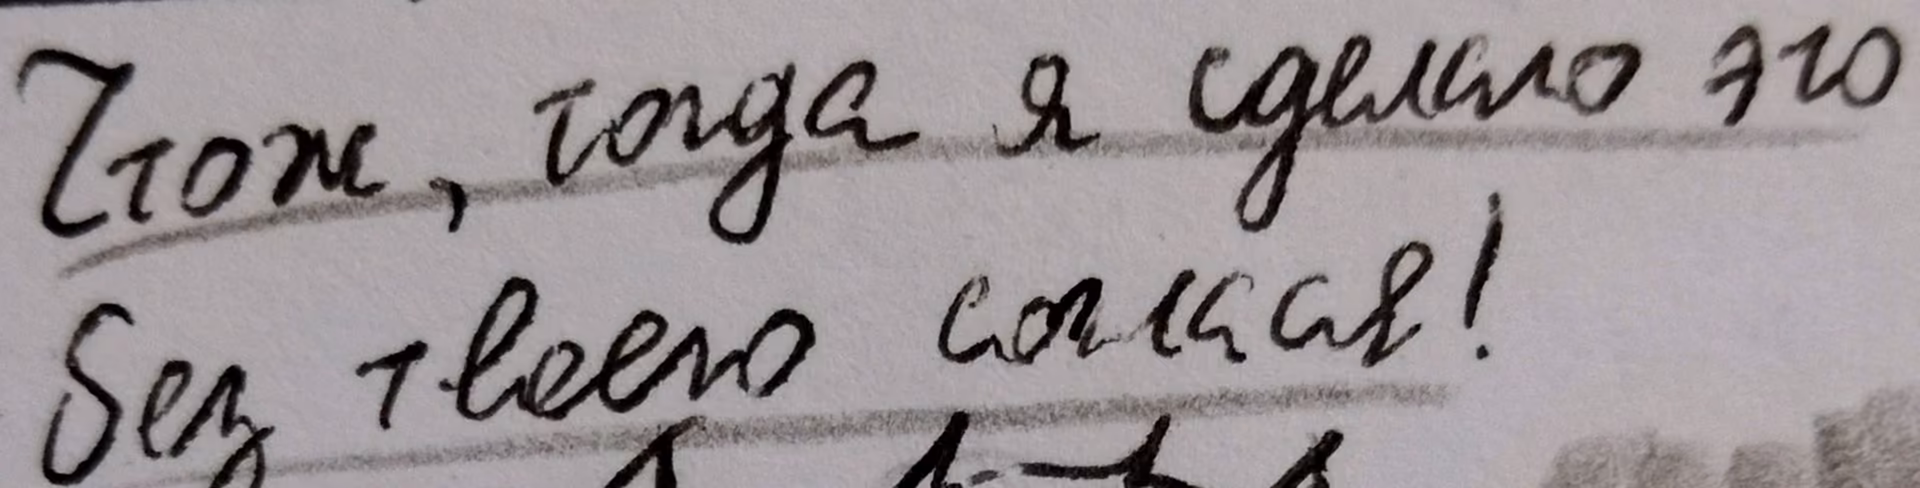 Чтож, тогда я сделаю это
без твоего согласия!